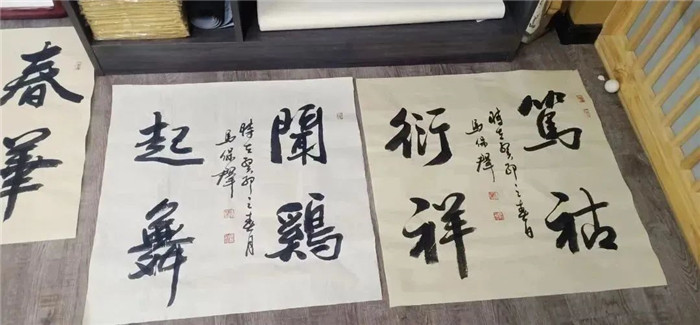 春華
聞鷄
起舞
時在癸卯之春月
馬保輝
篤祜
衍祥
時在癸卯之春月
馬保輝